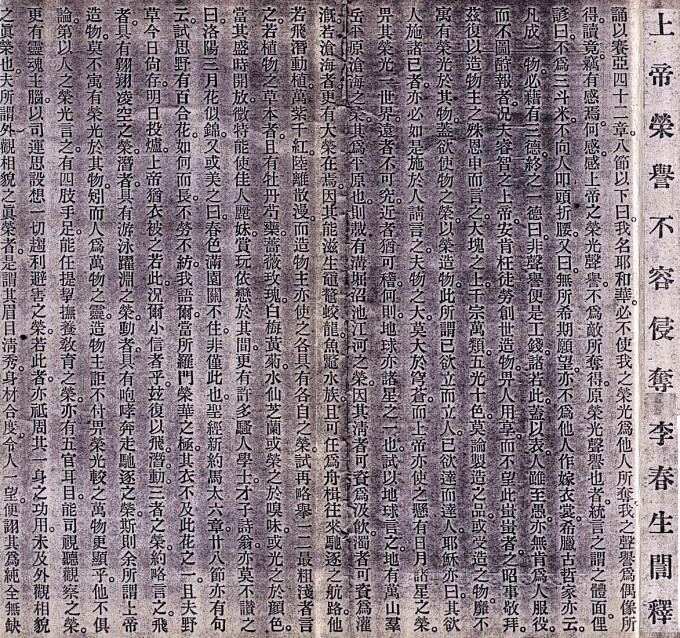 上帝榮譽不容侵奪　李春生閒釋
誦以賽亞四十二章八節以下曰我名耶和華。必不使我之榮光為他人所奪我之聲譽為偶像所
得讀竟竊有感焉何感感上帝之榮光聲譽不為敵所奪得原榮光聲譽也者統言之謂之體面俚
諺曰不為三斗米不向人叩頭折腰又曰無所希期願望亦不為他人作嫁衣裳希臘古哲家亦云
凡成一物必藉有三德終之一德曰非聲譽便是工錢諮若此蓋以表人雖至愚亦無肯爲人服役
而不圖酧報者況大睿智之上帝安肯枉徒勞創世造物畀人用享而不望此蚩蚩者之昭事敬拜
茲復以造物主之殊恩申而言之大塊之上千宗萬類五光十色莫論製造之品或受造之物靡不
寓有榮光於其物蓋欲使物之榮以榮造物此所謂已欲立而立人已欲達而達人耶穌亦曰其欲
人施諸己者亦必如是施於人請言之夫物之大莫大於穹蒼而上帝亦使之懸有日月諸星之榮。
畀其榮光三世界遠者不可究近者猶可稽何則地球亦諸星之一也試以地球言之地有萬山羣
岳平原滄海之榮其為平原也則有溝沼池江河之榮因其清者可資為汲飲濁者可資為灌
漑若滄海者更有大榮在焉因其能滋生黿鼉蛟龍魚鼈水族且可任為舟楫往來馳逐之航路他
若飛潛動植萬紫千紅陸離散漫而造物主亦使之各具有各自之榮試再略舉一二最粗淺者言
之若植物之草本者且有牡丹芍藥薔薇玫瑰白梅黃菊水仙芝蘭或榮之於嗅味或光之於顏色。
當其盛時開放微特能使佳人麗妹賞玩依戀於其間更有許多騷人學士才子詩翁亦莫不讚之
曰洛陽三月花似錦又或美之曰春色滿園關不住非僅此也聖經新約馬太六章廿八節亦有句
云試思野有百合花如何而長不勞不紡我語爾當所羅門榮華之極其衣不及此花之一且夫野
草今日尙存明日投爐上帝猶衣被之若此況爾小信者乎茲復以飛潛動三者之榮約略言之飛
者具有翱翔凌空之榮潛者具有游泳躍淵之榮動者具有咆哮奔走馳逐之榮斯則余所謂上帝
造物莫不寓有榮光於其物矧而人為萬物之靈造物主詎不付畀榮光較之萬物更顯乎他不俱
論第以人之榮光言之有四肢手足能任提挈撫養敎育之榮亦有五官耳目能司視聽觀察之榮。
更有靈魂主腦以司運思設想一切趨利避害之榮若此者亦祗周其一身之功用未及外觀相貌
之眞榮也夫所謂外觀相貌之眞榮者是謂其眉目淸秀身材合度令人一望便認其為純全無缺